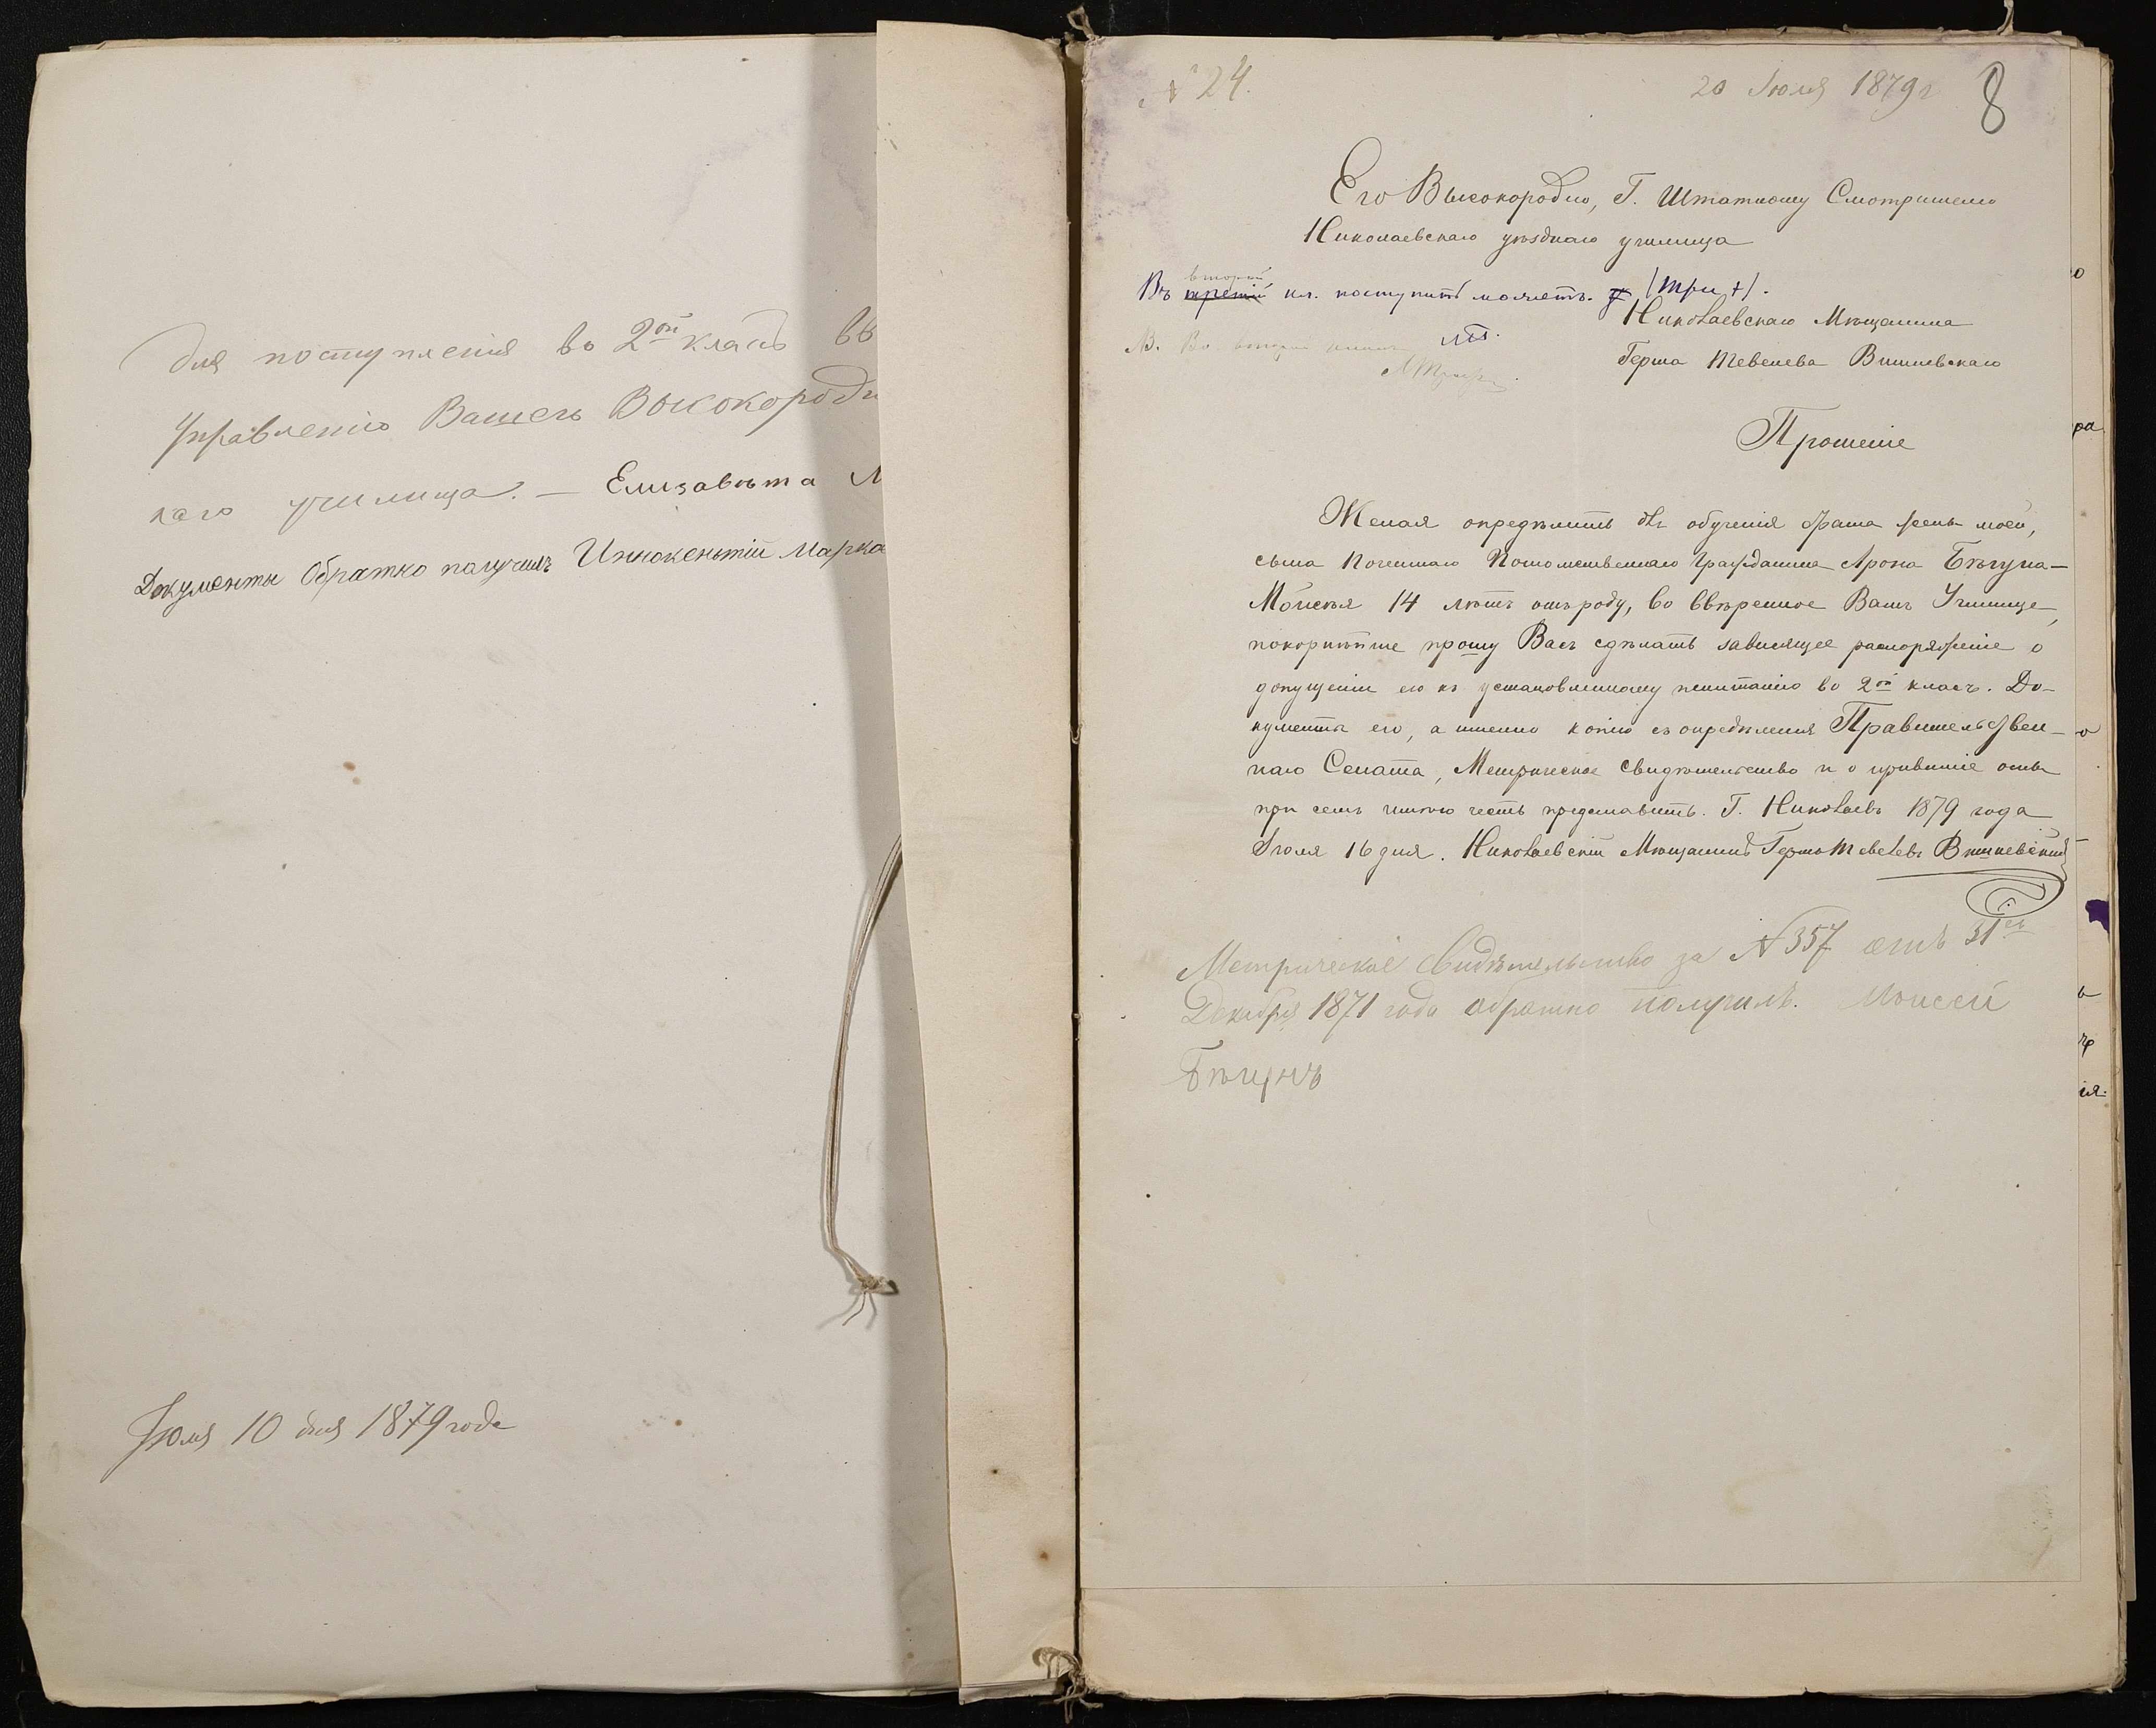 для поступленія во 2ой класъ вв
управленію Вашего Высокороди
каго училища. — Елизавѣта М
Документы обратно получилъ Иннокентій Марка
Іюля 10 дня 1879 года
№ 24.
20 Іюля 1879 г
8
Его Высокородію, Г. Штатному Смотрителю
Николаевскаго уѣзднаго училища
второй
Въ третій кл. поступить можетъ. (три +).
Во второй классъ
Николаевскаго Мѣщанина
Герша Тевелева Вишневскаго
Прошеніе
Желая опредѣлить для обученія брата жены моей,
сына Почетнаго Потомственнаго Гражданина Арона Бѣгуна—
Моисея 14 лѣтъ отъ роду, во ввѣренное Вамъ Училище,
покорнѣйше прошу Васъ сдѣлать зависящее распоряженіе о
допущеніи его къ установленному испытанію во 2ой класъ. До-
кументы его, а именно копію съ опредѣленія Правительствен-
наго Сената, Метрическое свидѣтельство и о привитіе оспы
при семъ имѣю честь представить. Г. Николаевъ 1879 года
Іюля 16 дня. Николаевскій Мѣщанинъ Герш Тевелевъ Вишневскій
Метрическое свидѣтельство за № 357 отъ 31го
Декабря 1871 года обратно получилъ. Моисей
Бѣгунъ
о
ра
о
ь
ія.